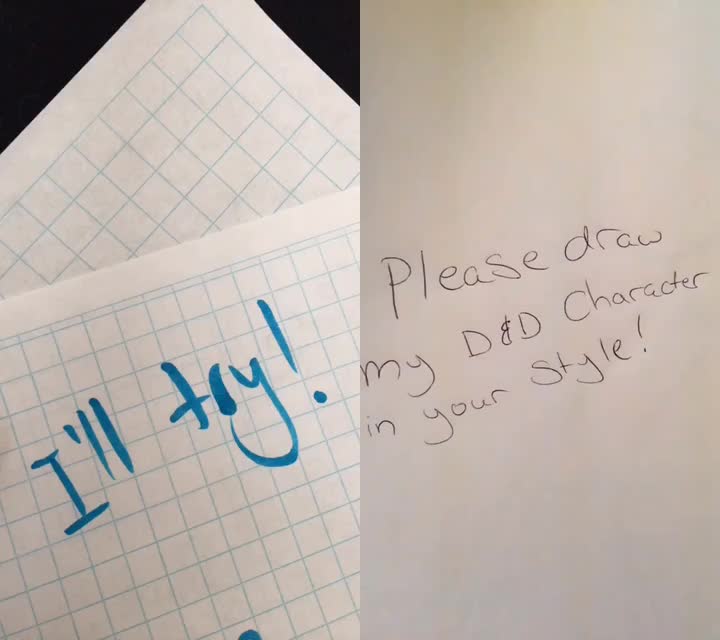 I'll try!
Please draw
my D&D Character
in your style!